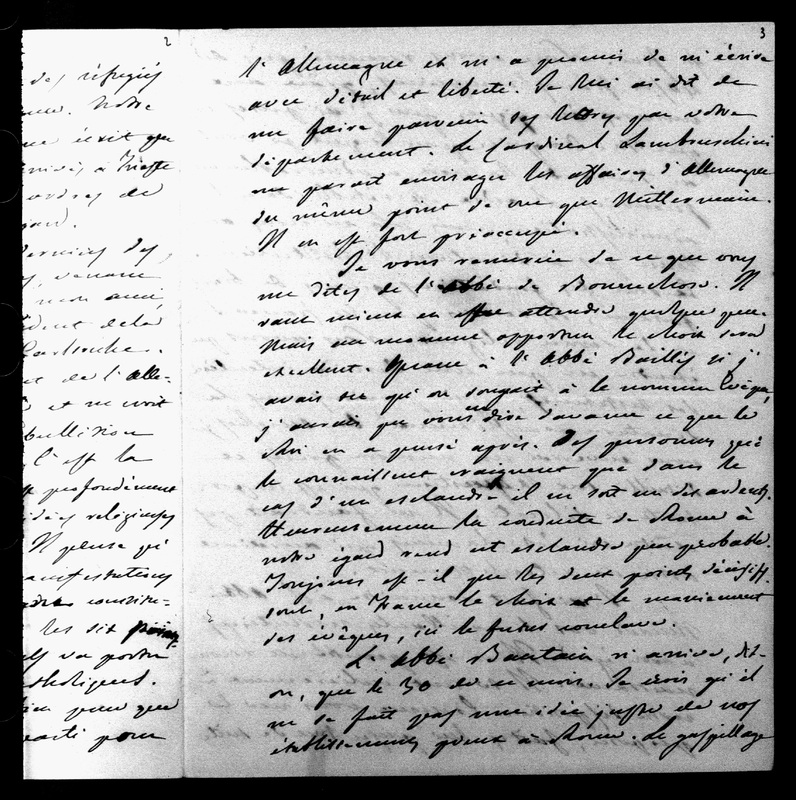 2
des réfugiés
Notre
écrit que
à Trieste
ordres de
derniers des
venant
mon ami
dela
Carlsruhe.
de l'Alle-
et me croit
C'est la
profondément
idées religieuses
Il pense qu'
manifestations
constitu-
les dit
va porter
catholiques.
peu que
parti pour
3
l'Allemagne et m'a promis de m'écrire
avec détail et liberté. Je lui ai dit de
me faire parvenir ses lettres par votre
département. Le Cardinal Lambruschini
me parait envisager les affaires d'Allemagne
du même point de vue que Metternich.
Il en est fort préoccupé.
Je vous remercie de ce que vous
me dites de l'abbé de Bonnechose. Il
vaut mieux en effet attendre quelque peu.
Mais au moment opportun le choix sera
excellent. Quant à l'Abbé Bailly si j'
avais su qu'on songeait à le nommer Evêque,
j'aurais pu vous en dire d'avance ce que le
Roi en a pensé après. Des personnes qui
le connaissent craignent que dans le
cas d'un esclandre il en soit un des ardents.
Heureusement la conduite de Rome à
notre égard rend cet esclandre peu probable.
Toujours est-il que les deux points décisifs
sont, en France le choix et le maniement
des évêques, ici le futur conclave.
L'Abbé Bautain n'arrive, dit-
on, que le 30 de ce mois. Je crois qu'il
ne se fait pas une idée juste de nos
établissements pieux à Rome. Le gaspillage